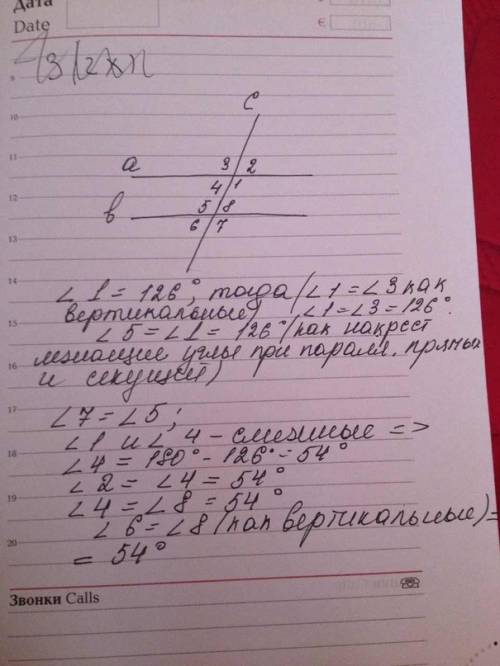 Дата
Date
€
9
10
c
11
a
3 2
12
4 1
в
5 8
13
6 7
14
∠1 = 126°, тогда (∠1 = ∠3 как
вертикальные) ∠1 = ∠3 = 126°.
15
∠5 = ∠1 = 126° (как накрест
лежающие углы при паралл. прямых
16
и секущей)
17
∠7 = ∠5;
∠1 и ∠4 - смежные =>
18
∠4 = 180° - 126° = 54°
∠2 = ∠4 = 54°
19
∠4 = ∠8 = 54°
∠6 = ∠8 (как вертикальные) =
20
= 54°
Звонки Calls